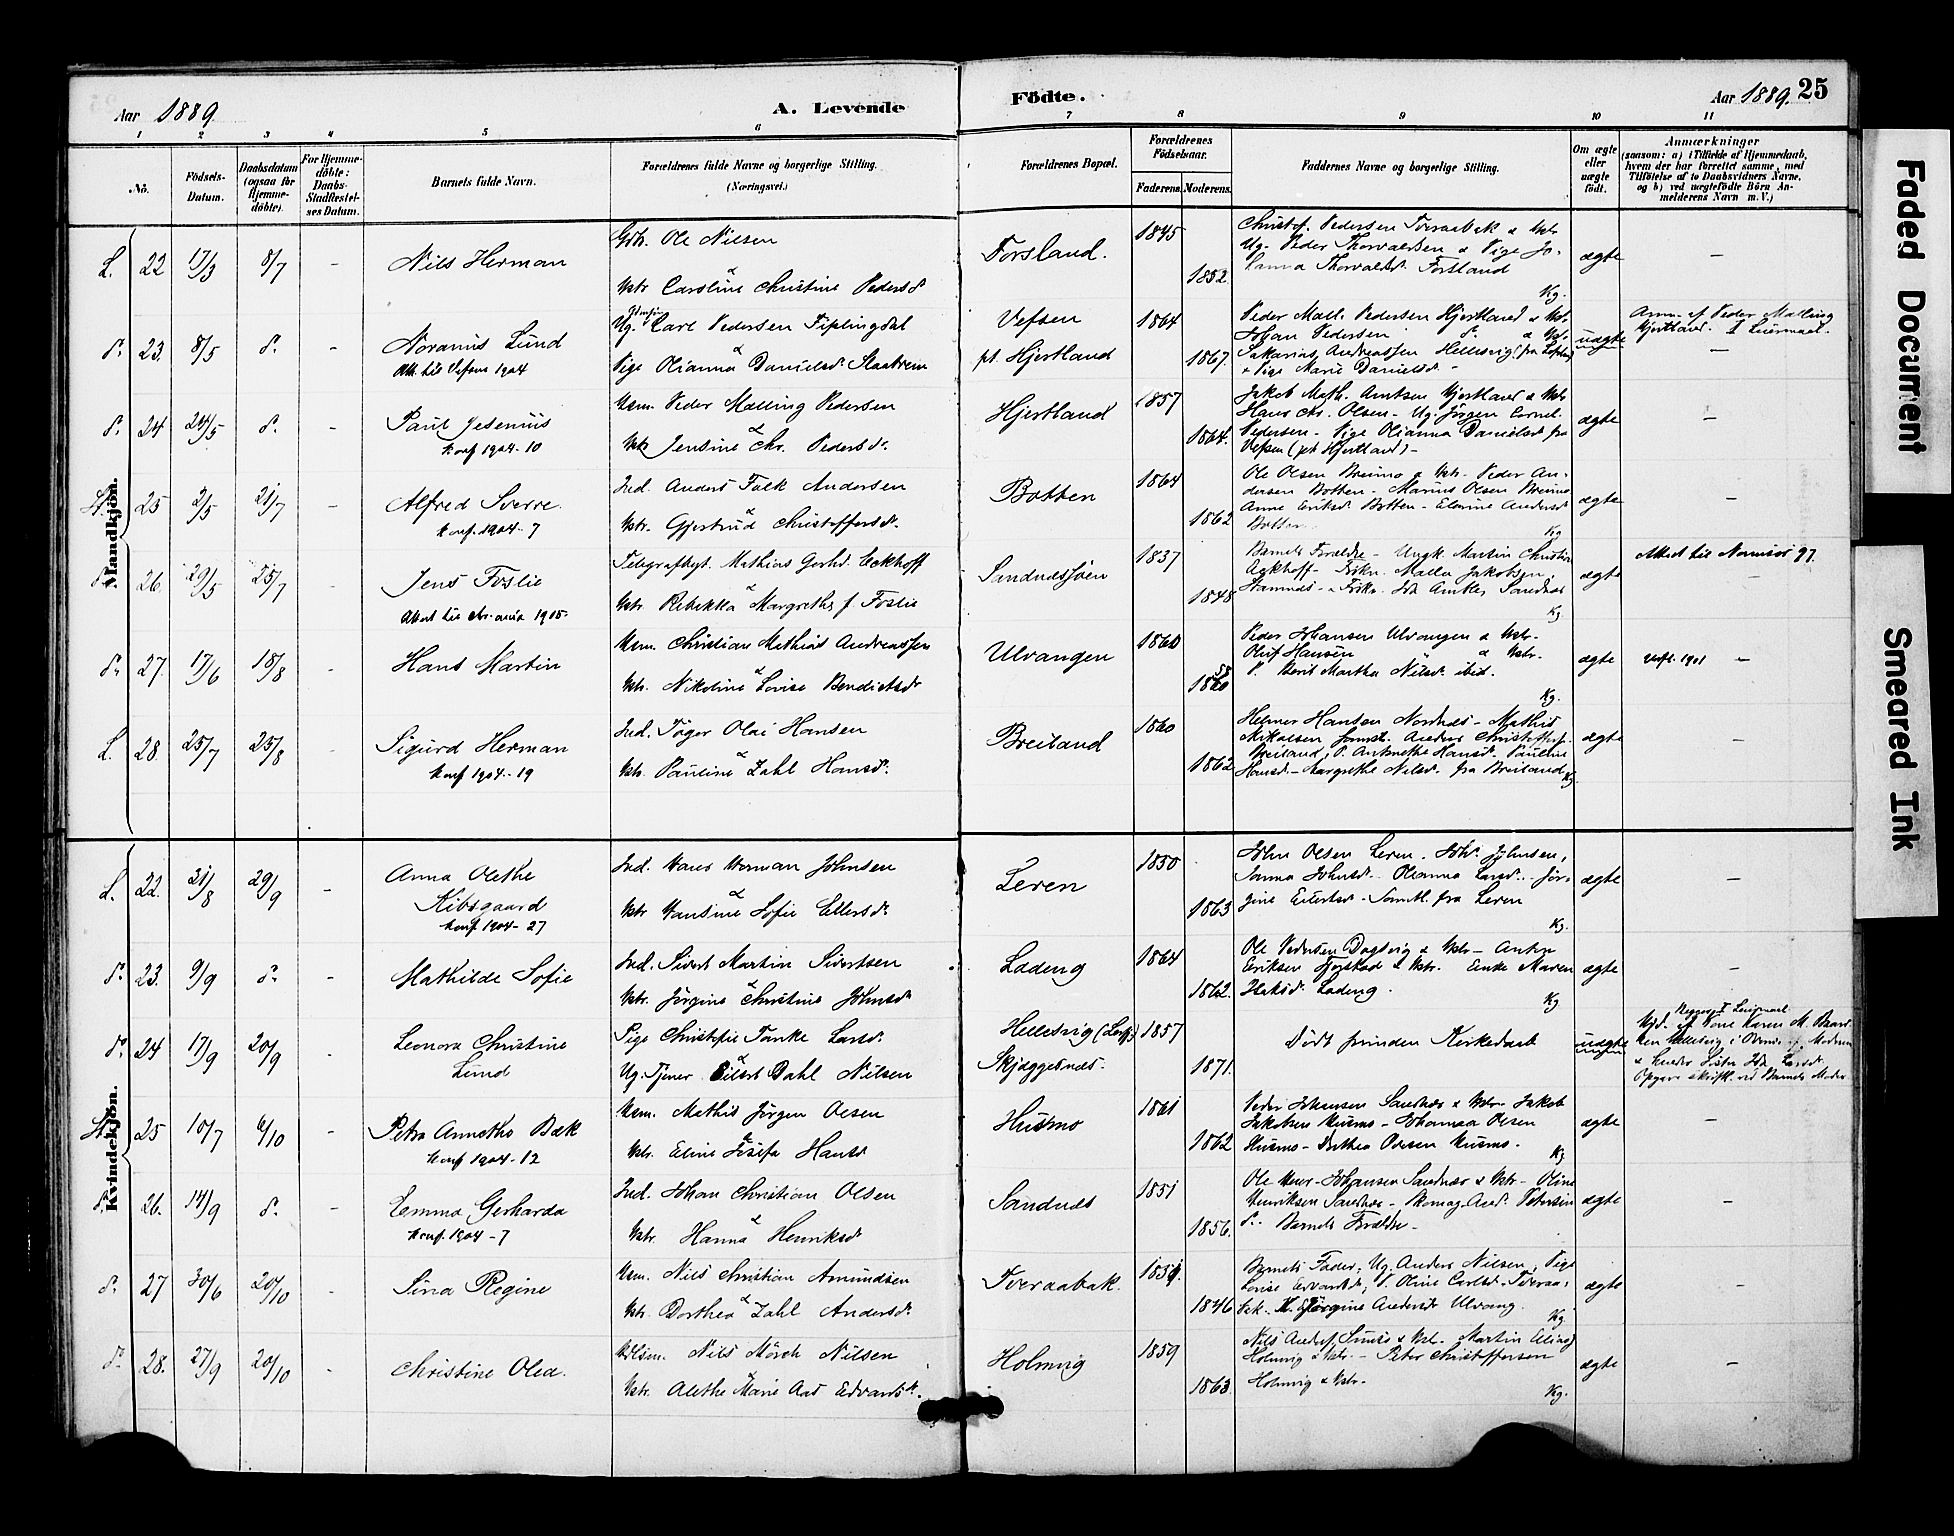 Aar 1889.
A. Levende
Födte.
Aar 1889. 25
1 2 3 4 5 6 7 8 9 10 11
No.
Födsels-Datum.
Daabsdatum (ogsaa för Hjemme-döbte).
For Hjemme-döbte: Daabs-Stadfæstel-ses Datum.
Barnets fulde Navn.
Forældrenes fulde Navne og borgerlige Stilling. (Næringsvei.)
Forældrenes Bopæl.
Forældrenes Födselsaar.
Faderens. Moderens.
Faddernes Navne og borgerlige Stilling.
Om ægte eller uægte födt.
Anmærkninger
(saasom: a) i Tilfælde af Hjemmedaab,
hvem der har forrettet samme, med
Tilföielse af to Daabsvidners Navne,
og b) ved uægtefödte Börn An-
melderens Navn m. V.)
Mandkjön.
L. 22 17/3 8/7 - Nils Herman
Gbr. Ole Nilsen
&
Kstr Caroline Christine Pedersd
Forsland. 1845 1852
Christ. Pedersen Tveraabak & Kstr
Ug. Peder Thorvaldsen & Pige Jo-
hanna Thorvaldsd. Forsland
Kg.
ægte -
d. 23. 8/5 d. - Noranus Lund
Att. til Vefsen 1904
Ug. Carl Pedersen Fiplingdal
&
Pige Olianna Danielsd. Slaatrem
Vefsen
pt. Hjertland 1864 1867.
Peder Mall. Pedersen Hjertland & Kst.
Johan Pedersen d. & Kst.
Sakarias Andreassen Hellesvig
& Pige Marie Danielsd. -
uægte
Anm. af Peder Malling
Hjertland.
-
d. 24 24/5 d. - Paul Jesenius
Konf 1904-10
Usm. Peder Malling Pedersen
&
Kstr Jensine Chr. Pedersd.
Hjertland 1857 1864.
Jakob Math. Amtsen Hjertland & Kstr
Hans Chr. Olsen - Ug. Jörgen Cornel.
Pedersen - Pige Olianna Danielsd. fra
Vefsen (pt. Hjertland) -
ægte -
St. 25 2/5 21/7 - Alfred Sverre.
Konf. 1904-7
Ind. Anders Falk Andersen
&
Kstr. Gjertrud Christoffersd.
Botten 1864 1862
Ole Olsen Breimo & Kstr. Peder An-
dersen Botten - Marius Olsen Breimo
Anne Eriksd. Botten - Elerine Andersd
Botten
Kg
ægte -
d. 26. 29/5 25/7 - Jens Foslie
Attest til Chr.ania 1905-
Telegrafbest. Mathias Gerhd. Eckhoff
&
Kstr. Rebekka Margrethe f. Foslie
Sandnessjöen 1837 1848
Barnets Forældre - Ungk. Martin Christian
Eckhoff - Frkn. Malla Jakobsen
Stamnes - Frkn. Ida Sandnes
Kg
ægte
-
d. 27. 17/6 18/8 - Hans Martin
Usm. Christian Mathias Andreassen
&
Kstr. Nikoline Lovise Bendictsdr
Ulvangen 1860 1860
Peder Johansen Ulvangen & Kstr.
Oluf Hansen & Kstr.
P. Berit Martha Nilsd. ibid.
Kg.
ægte 1901 -
L. 28. 25/7 25/8 - Sigurd Herman
Konf 1904-19
Ind. Töger Olai Hansen
&
Kstr. Pauline Zahl Hansd.
Breiland 1860 1862
Helmer Hansen Nordnæs - Mathis
Mikalsen Anders Christoffers.
Breiland, P. Antonethe Hansd. Pauline
Hansd. - Margrethe Nilsd. fra Breiland Kg.
ægte -
Kvindekjön.
L. 22. 31/8 29/9 - Anna Olethe
Kibsgaard
Konf 1904-27
Ind. Hans Herman Johnsen
&
Kstr Hansine Sofie Ellersd.
Leren 1850 1863
John Olsen Leren. Joh. Johnsen,
Janna Johnsd. Olianna Larsd. - Jör-
gine Eilertsd. - Samtl. fra Leren
Kg.
ægte -
d. 23. 9/9 d. - Mathilde Sofie
Ind. Sivert Martin Sivertsen
&
Kstr. Jörgine Christine Johnsd.
Ladeng 1864 1862.
Ole Pedersen Dagsvig & Kstr - Anton
Eriksen Forstad & Kstr. Enke Maren
Isaksd. Ladeng.
Kg
ægte -
d. 24 17/9 20/9 - Leonora Christine
Lund
Pige Christofie Tanke Larsd.
&
Ug. Tjener. Eilert Dahl Nilsen
Hellesvig
Skjeggesnes. 1857 1871.
Dödt forinden Kirkedaab
uægte
Begges 1 Leiermaal
St. 25 10/7 6/10 - Petra Annetho Bæk
Konf 1904-12
Usm. Mathis Jörgen Olsen
&
Kstr. Eline Josefa Hansd
Husmo 1861 1862
Peder Johansen Sandnæs & Kstr - Jakob
Jakobsen Husmo - Johanna Olsen
Husmo - Dorthea Olsen Husmo.
Kg
ægte -
d. 26. 14/9 d. - Emma Gerharda
Konf. 1904-7
Ind. Johan Christian Olsen
&
Kstr. Hanna Henriksd
Sandnæs 1851 1856.
Ole Johansen Sandnæs & Kstr - Oline
Henriksen Sandnæs - Skomag. And. Petersen
d. Barnets Forældre -
ægte -
d. 27 30/6 20/10 - Sina Regine
Usm. Nils Christian Amundsen
&
Kstr. Dorthea Zahl Andersd.
Tveraabak. 1839. 1846
Barnets Fader, Ug. Anders Nilsen, Pige
Lovise Edvardsd., P. Oline Carlsd. Tveraa-
bak. K. Jörgine Andersdr Ulvang.
Kg
ægte -
d. 28. 27/9 20/10 - Christine Olea.
Nils Mörch Nilsen
Kstr. Alethe Marie Aas Edvards d.
Holmvig 1859 1863.
Nils Anders. & Kst. Martin Elias
Holmvig & Kstr. - Peter Christoffersen
Holmvig & Kstr -
Kg.
ægte -
Faded Document
Smeared Ink